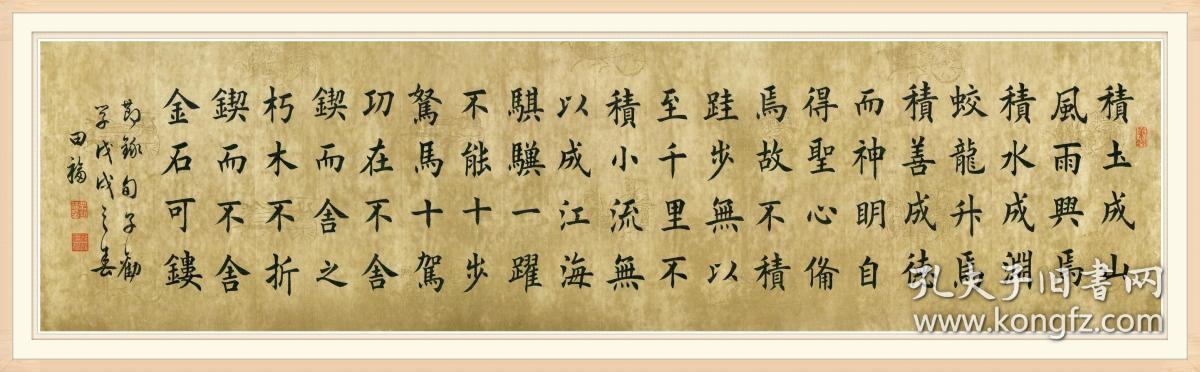 積土成山
風雨興焉
積水成淵
蛟龍升焉
積善成德
而神明自
得聖心俻
焉故不積
跬步無以
至千里不
積小流無
以成江海
騏驥一躍
不能十步
駑馬十駕
功在不舍
鍥而舍之
朽木不折
鍥而不舍
金石可鏤
節録荀子勸
学戊戌之春
田福
孔夫子旧书网
www.kongfz.com